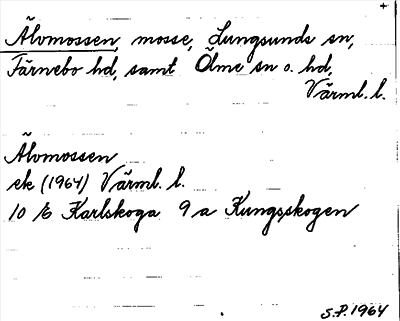 Älvmossen, mosse, Lungsunds sn,
Färnebo hd, samt Ölme sn o. hd,
Värml. l.
Älvmossen
ek (1964) Värml. l.
10 E Karlskoga 9 a Kungsskogen
S.P. 1964